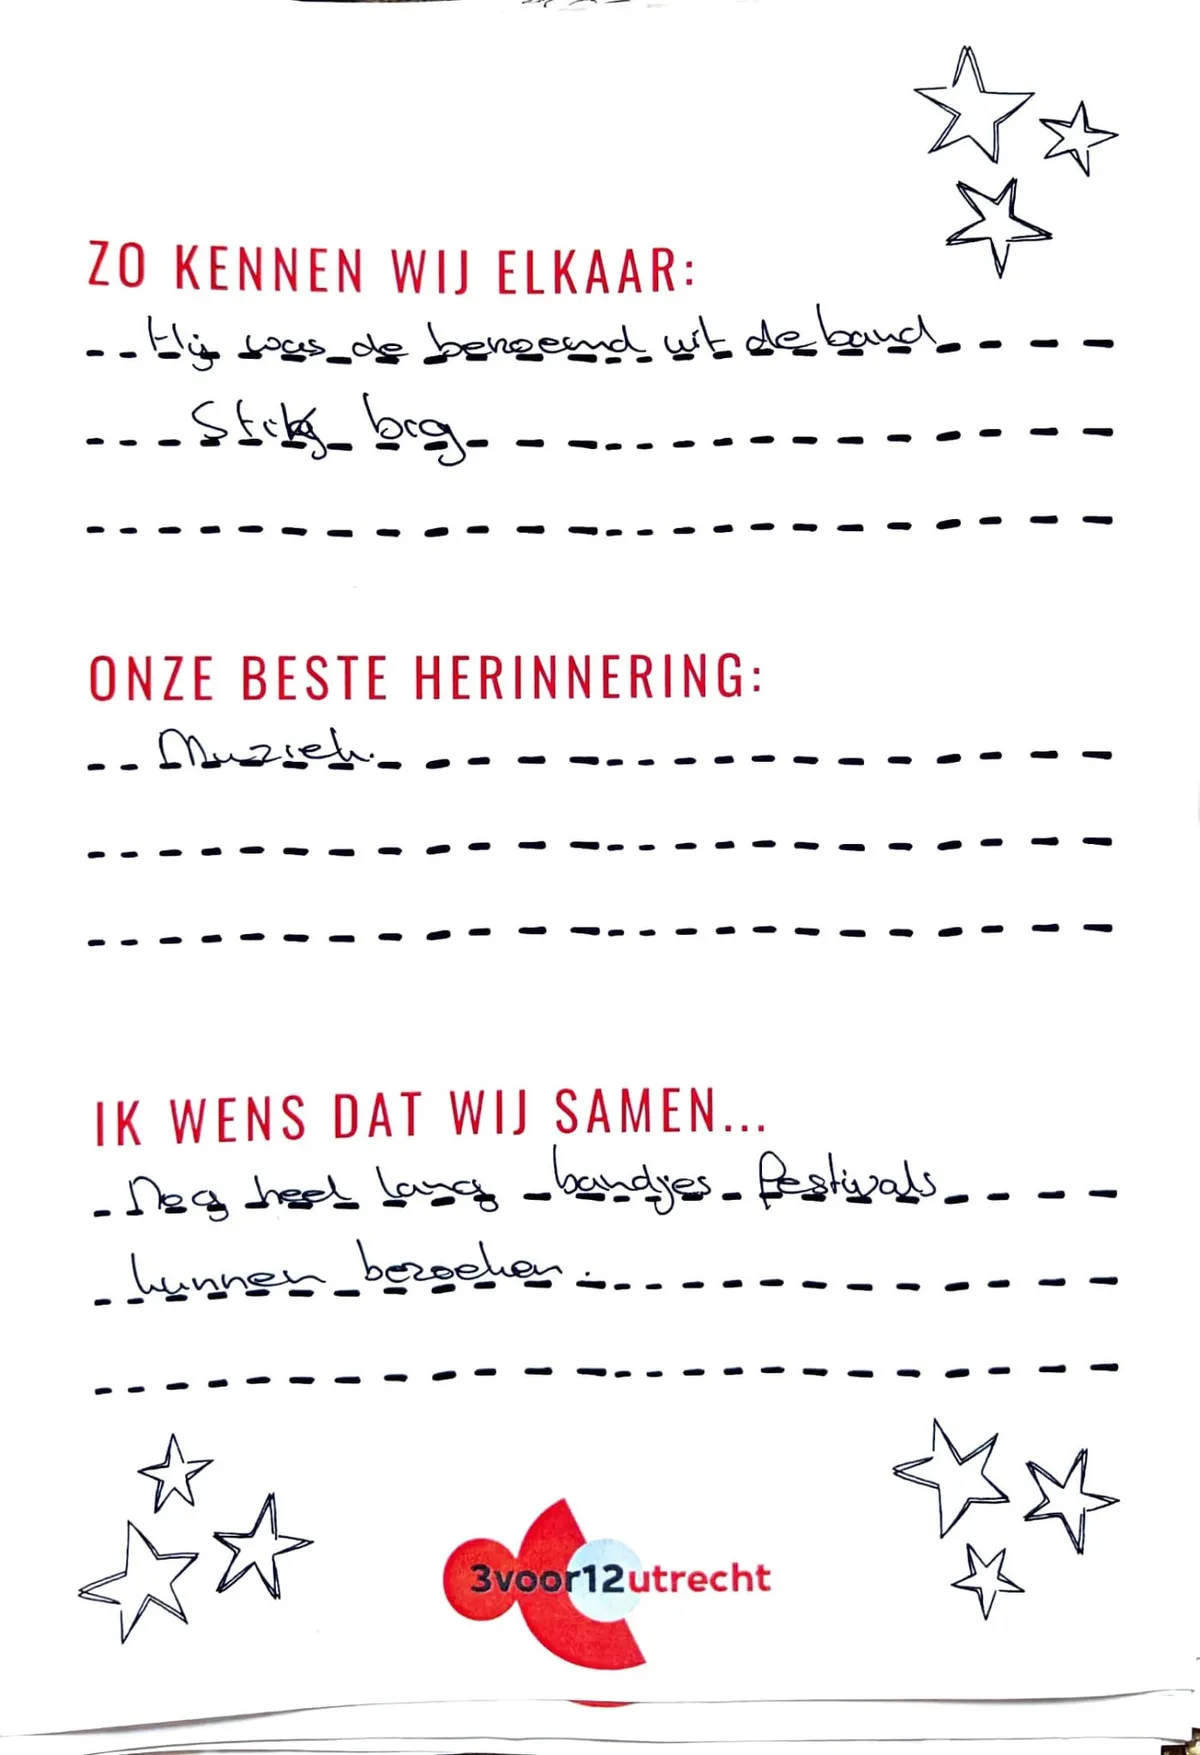 ZO KENNEN WIJ ELKAAR:
Hij was de beroemd uit de band
big
ONZE BESTE HERINNERING:
Muziek.
IK WENS DAT WIJ SAMEN...
Nog heel lang bandjes festivals
kunnen bezoeken.
3voor12utrecht